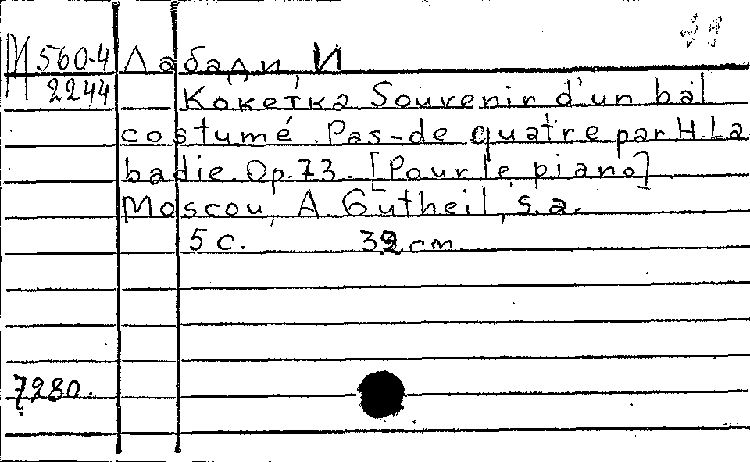 М 560-4 Лабади, И
2244 Кокетка Souvenir d'un bal
costumé. Pas-de quatre par H. La
badie. Op. 73. [Pour le piano]
Moscou, A Gutheil, s.a.
5 с. см
7280.